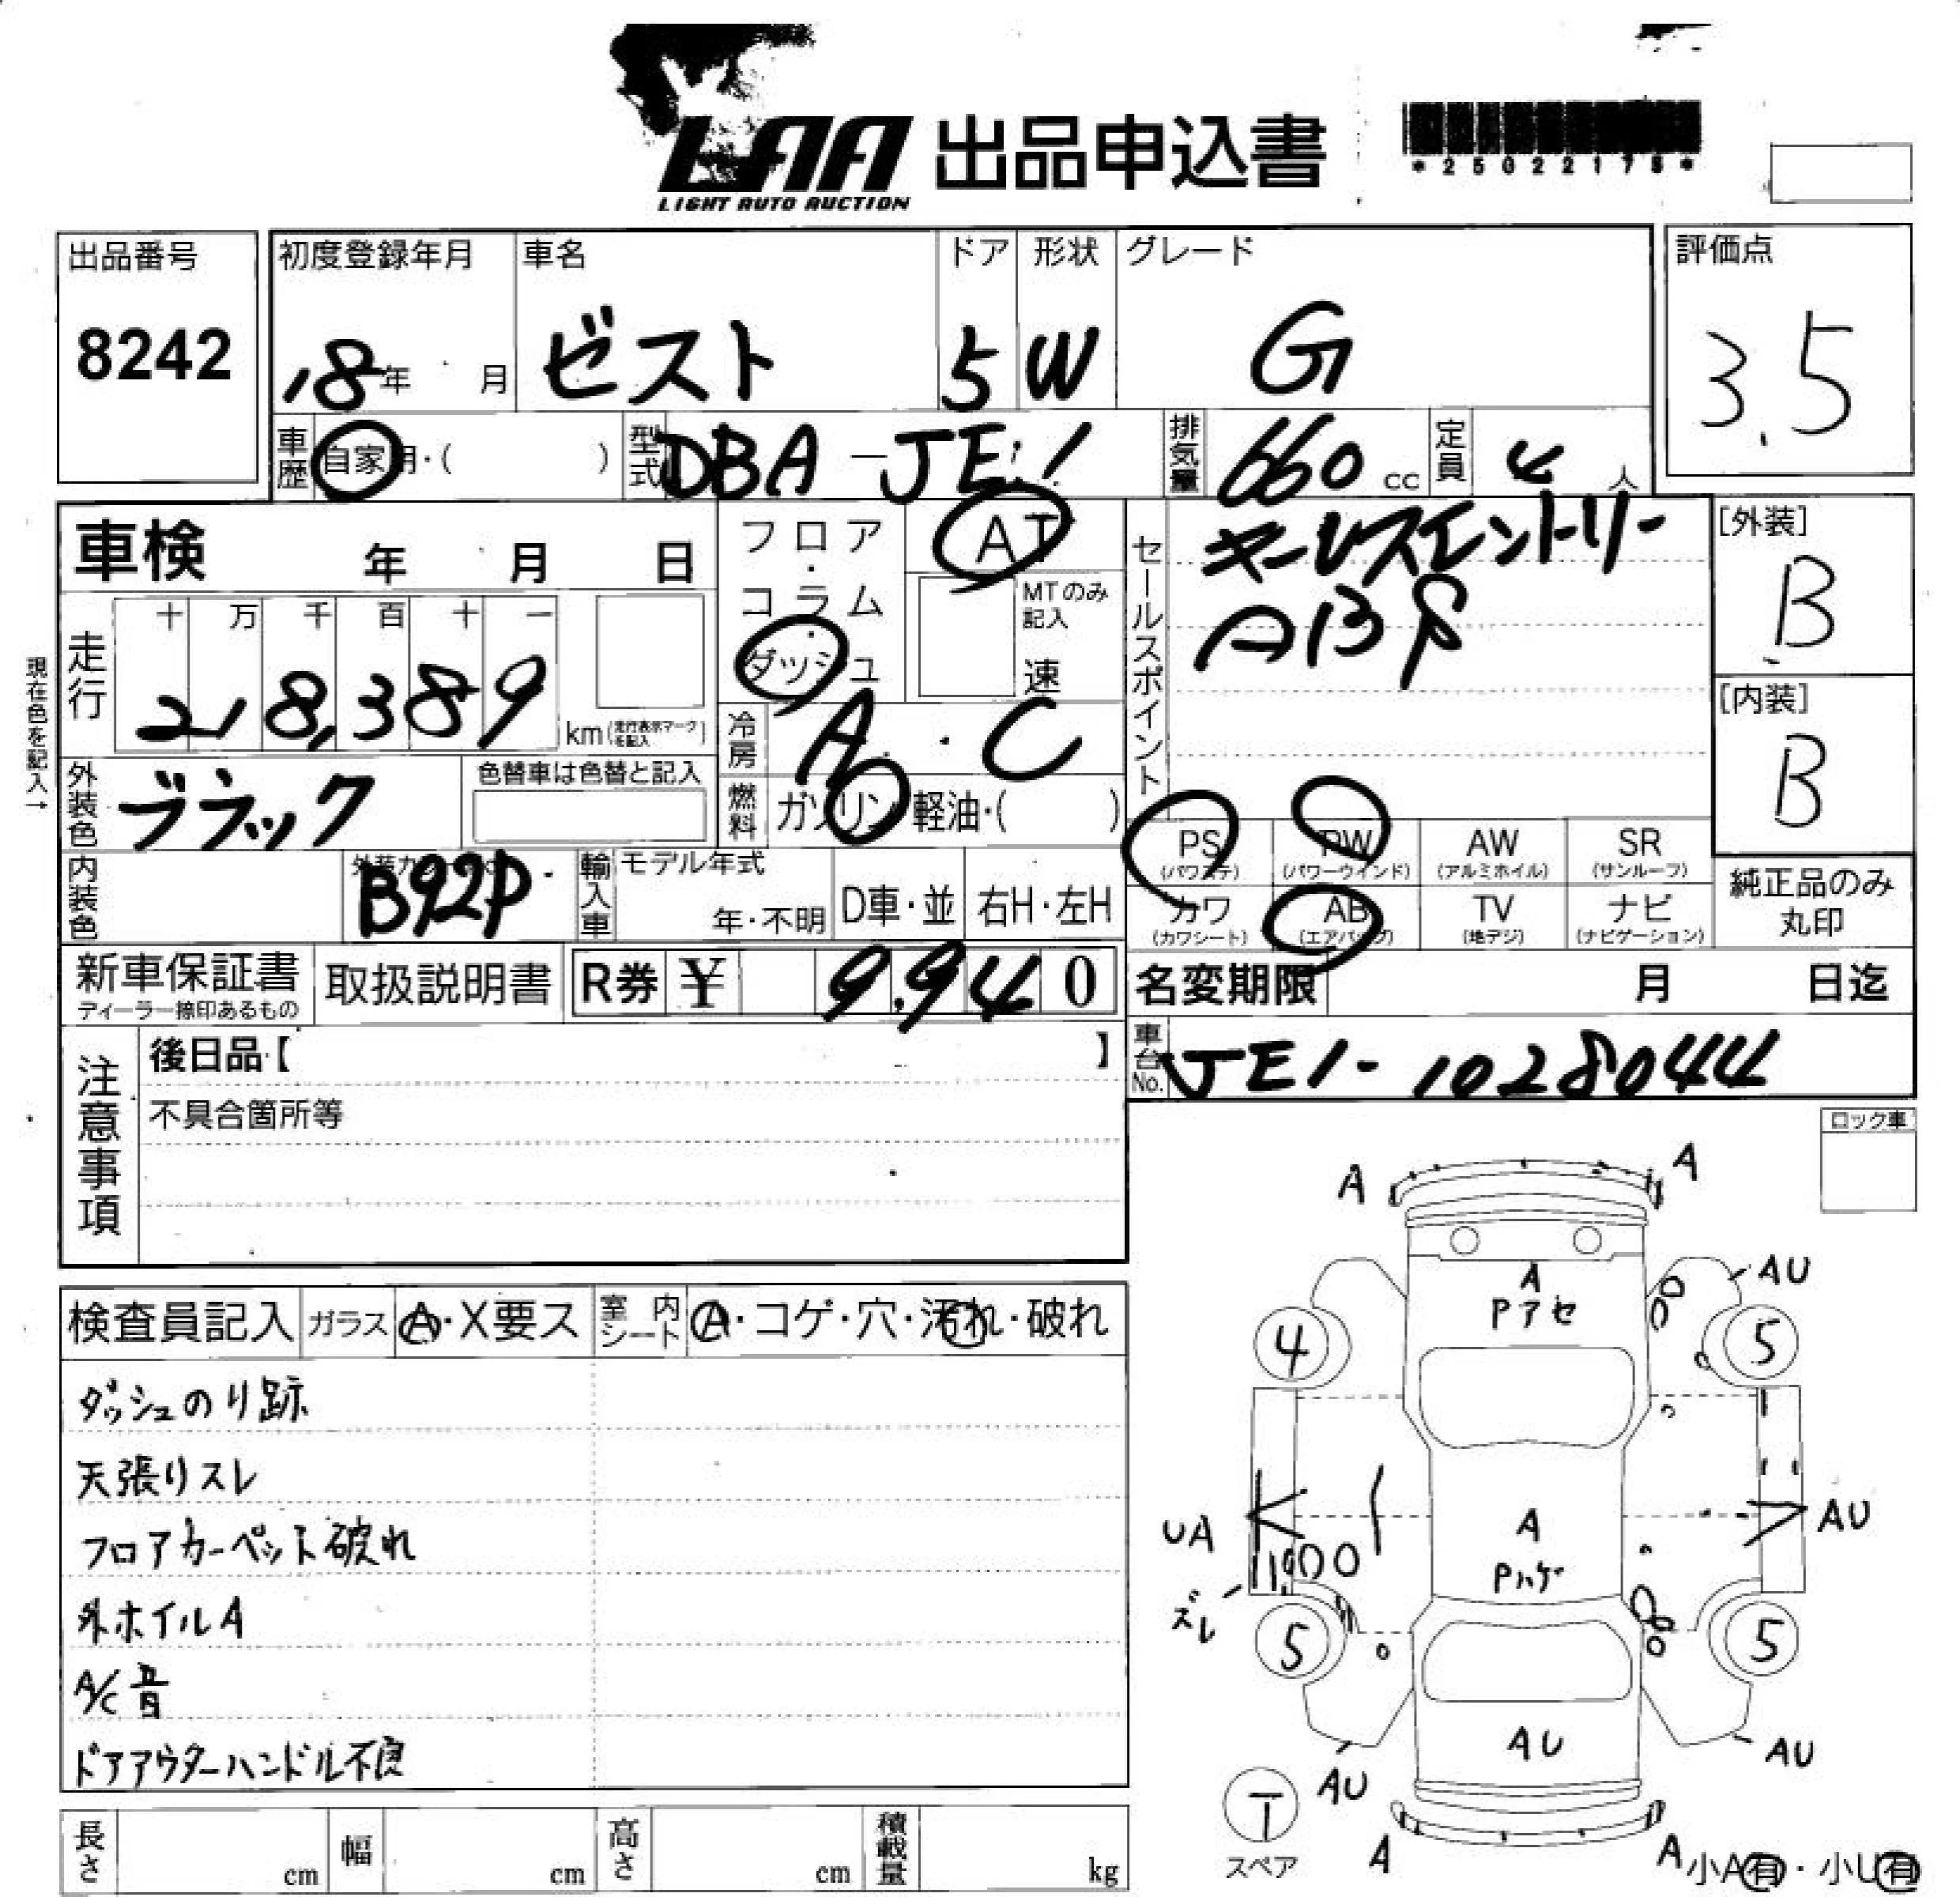 LAA 出品申込書
LIGHT AUTO AUCTION
*25022175*
出品番号
8242
初度登録年月
18年 月
車名
ゼスト
ドア
5
形状
W
グレード
G
評価点
3.5
車歴 自家用・( )
型式 DBA-JE1
排気量 660 cc
定員 4 人
車検 年 月 日
フロア・コラム・ダッシュ
AT
MTのみ記入
速
セールスポイント
キーレスエントリー
ABS
[外装]
B
[内装]
B
現在色を記入→
走行
十 万 千 百 十 一
218,389
km(走行表示マークを記入)
冷房 A・C
外装色 ブラック
色替車は色替と記入
燃料 ガソリン 軽油・( )
PS (パワステ)
PW (パワーウインド)
AW (アルミホイル)
SR (サンルーフ)
カワ (カワシート)
AB (エアバッグ)
TV (地デジ)
ナビ (ナビゲーション)
純正品のみ丸印
内装色
B92P
輸入車
モデル年式
年・不明
D車・並
右H・左H
新車保証書
ディーラー捺印あるもの
取扱説明書
R券 ¥ 9,940
名変期限 月 日迄
車台No. JE1-1028044
注意事項
後日品【 】
不具合箇所等
ロック車
検査員記入
ガラス A・X要ス
室内シート A・コゲ・穴・汚れ・破れ
ダッシュのり跡
天張りスレ
フロアカーペット破れ
外ホイルA
A/C音
ドアアウターハンドル不良
A
A
AU
A
Pアセ
4
5
UA
ズレ
A
Pハゲ
AU
5
5
AU
AU
AU
T
スペア
A
A
小A有・小U有
長さ cm
幅 cm
高さ cm
積載量 kg